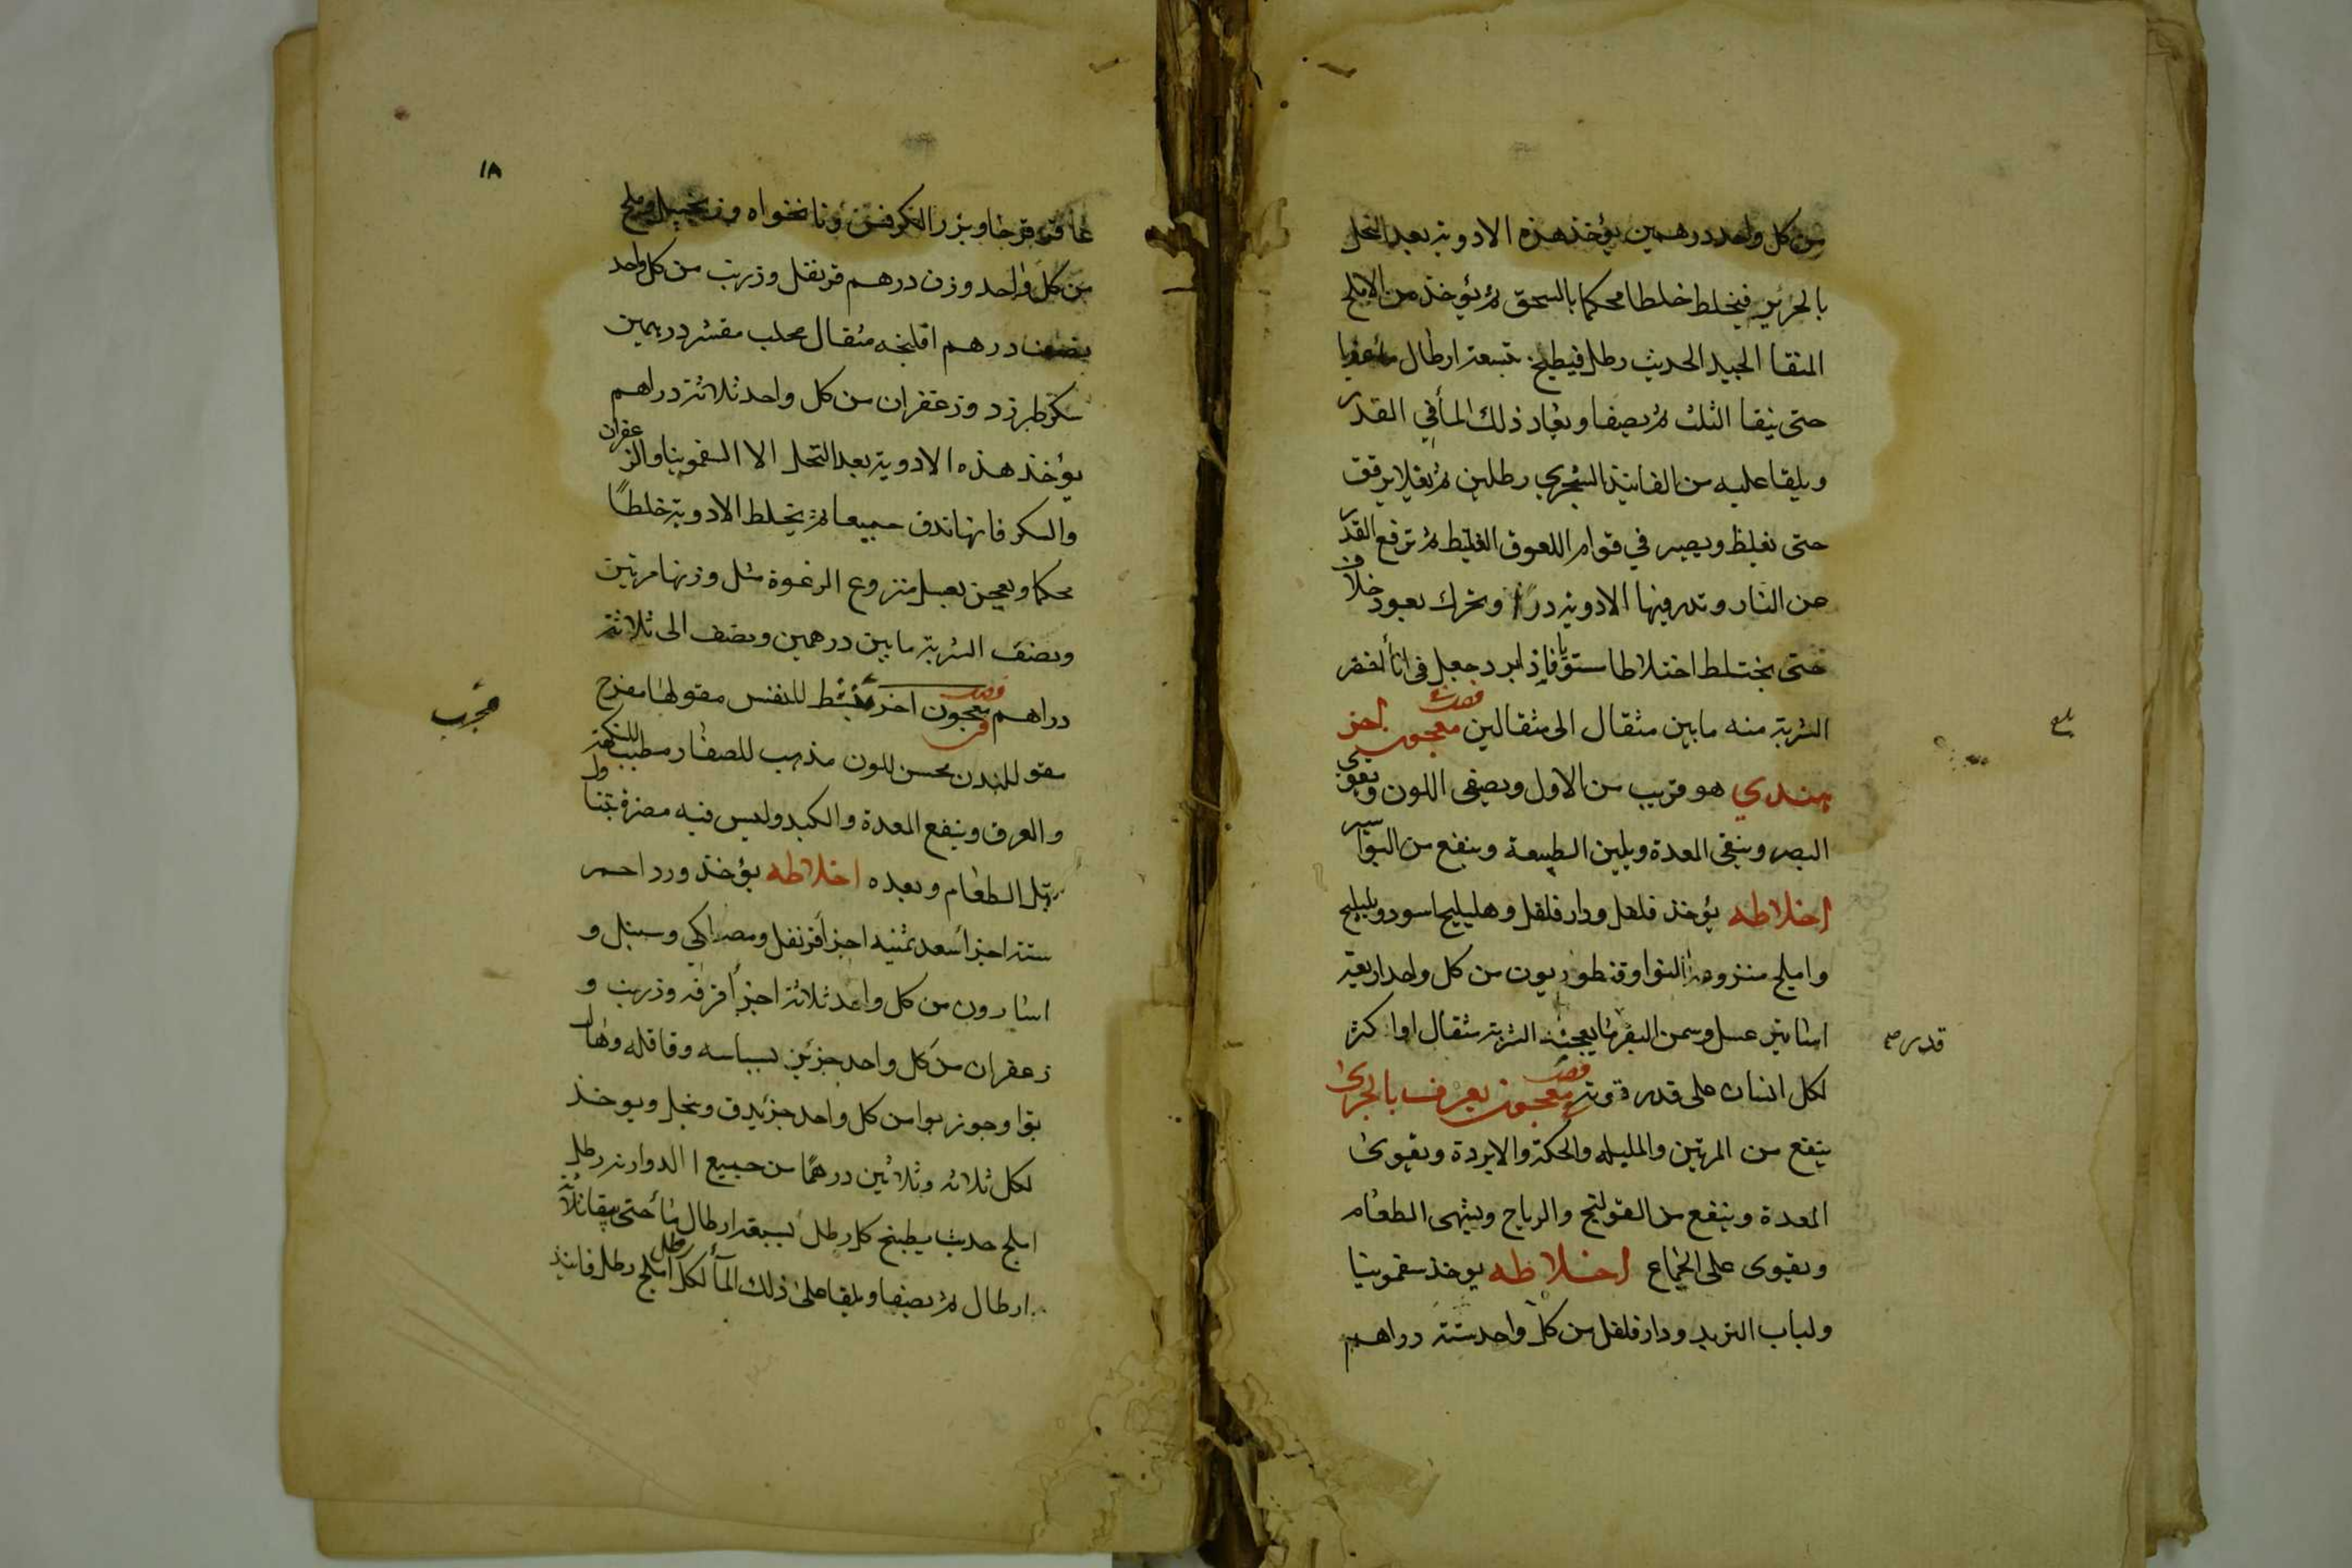 من كل واحد درهمين يؤخذ هذه الادوية بعد النخل
بالحرير فيخلط خلطا محكما بالسحق ثم يؤخذ من الاملج
المنقا الجيد الحديث رطل فيطبخ بتسعة ارطال ماء عذبا
حتى يبقا الثلث ثم يصفا ويعاد ذلك الماء في القدر
ويلقا عليه من الفانيذ السجزي رطلين ثم يغلا برقق
حتى تغلظ ويصير في قوام اللعوق الغليظ ثم ترفع القدر
عن النار وتذر فيها الادوية ذرًا وتحرك بعود خلاف
حتى يختلط اختلاطا مستويا فاذا برد جعل في اناء اخضر
الشربة منه ما بين مثقال الى مثقالين فصل معجون اخر
هندي هو قريب من الاول ويصفي اللون ويقوي
البصر وينقي المعدة ويلين الطبيعة وينفع من البواسير
اخلاطه يؤخذ فلفل ودار فلفل وهليليج اسود وبليلج
واملج منزوعة النوا وقنطوريون من كل واحد اربعة
اساتين عسل وسمن البقر ما يعجنه الشربة مثقال او اكثر
لكل انسان على قدر قوته فصل معجون يعرف بالجرى
ينفع من المرتين والمليله والحكة والابردة ويقوى
المعدة وينفع من القولنج والرياح ويشهي الطعام
ويقوى على الجماع اخلاطه يوخذ سقمونيا
ولباب التربد ودار فلفل من كل واحد ستة دراهم
قدر
١٨
عاقر قرحا وبزر الكرفس ونانخواه وزنجبيل وملح
من كل واحد وزن درهم قرنفل وزرنب من كل واحد
نصف درهم افلنجه مثقال محلب مقشر درهمين
سكر طبرزد وزعفران من كل واحد ثلاثة دراهم
يؤخذ هذه الادوية بعد النخل الا السقمونيا والزعفران
والسكر فانها تدق جميعا ثم يخلط الادوية خلطًا
محكما ويعجن بعسل منزوع الرغوة مثل وزنها مرتين
ونصف الشربة ما بين درهمين ونصف الى ثلاثة
دراهم فصل معجون اخر منشط للنفس مقو لها مفرح
مقو للبدن محسن للون مذهب للصفار مطيب للنكهة
والعرق وينفع المعدة والكبد وليس فيه مضرة يتناول
قبل الطعام وبعده اخلاطه يؤخذ ورد احمر
ستة اجزأ سعد ثمنيه اجزأ قرنفل ومصطكي وسنبل و
اسارون من كل واحد ثلاثة اجزأ قرفه وزرنب و
زعفران من كل واحد جزئين بسباسه وقاقله وهال
بوا وجوز بوا من كل واحد جزء يدق وينخل ويوخذ
لكل ثلاثه وثلاثين درهمًا من جميع الدواء زنه رطل
املج حديث يطبخ كل رطل بسبعة ارطال مأ حتى يبقا ثلاثة
ارطال ثم يصفا ويلقا على ذلك المأ لكل رطل املج رطل فانيذ
مجرب